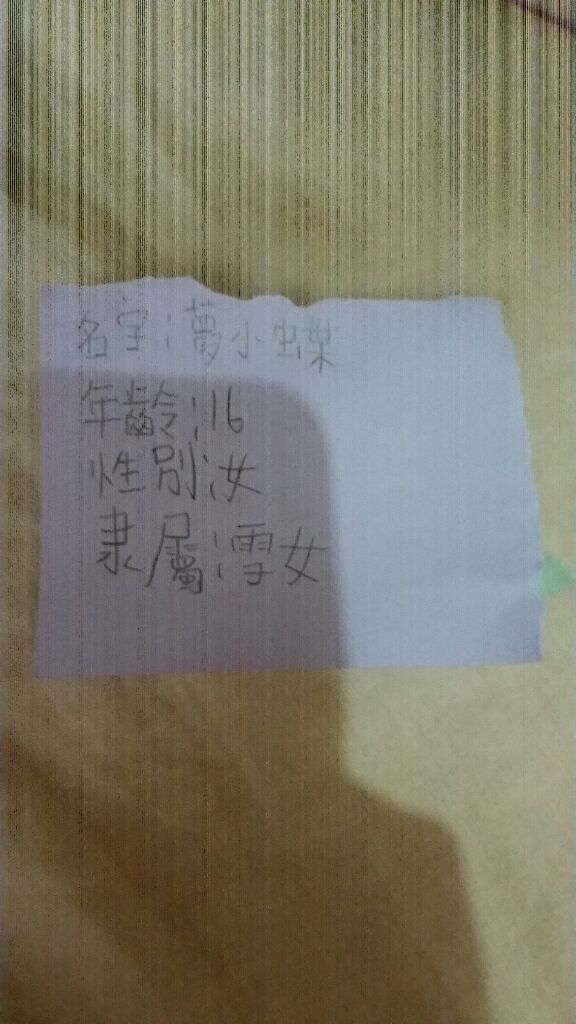 名字:夢小蝶
年齡:16
性別:女
隶屬:雪女